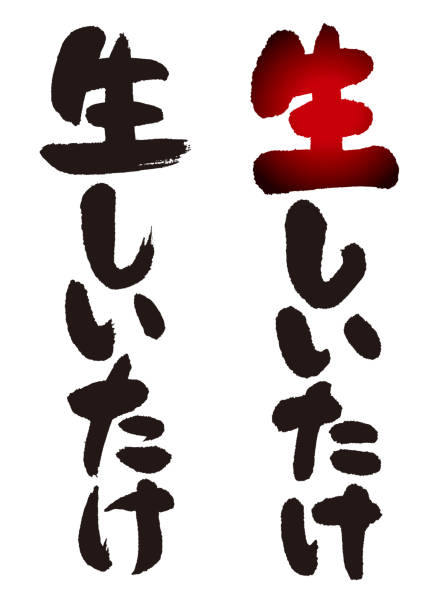 生しいたけ
生しいたけ